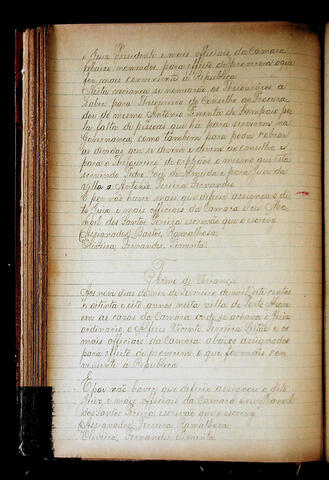 o Juiz Presidente e mais officiais da Camara
abaixo nomeados para effeito de proverem o que
for mais conveniente á Republica
Nesta vereança se nomearão os Thesoureiros a
saber para Thesoureiro do Conselho ao Procura
dor do mesmo Antonio Pimenta de Sampaio pe
la falta de pessoas que ha para servirem na
Governança como tambem para poder cobrar
as dividas que se devem e derem ao conselho e
para o Thesoureiro de orphãos o mesmo que está
servindo Pedro José de Almeida e para Juiz da
villa a Antonio Pereira Fernandes
E por não haver mais que deferir assignou o di
to Juiz e mais officiais da Camara e eu Ma
noel dos Santos Pereira escrivão que o escrevi
(Assignados) Bastos, Ramalhosa,
Oliveira, Fernandes, Pimenta
Termo de Vereança
Aos nove dias do mez de Fevereiro de mil sete centos
e setenta e sete annos nesta villa de
em as casas da Camara onde se achava o Juiz
ordinario o Alferes Vicente Ferreira e os
mais officiais da Camara abaixo assignados
para effeito de proverem o que for mais con
veniente á Republica
E por não haver que deferir assignou o dito
Juiz e mais officiais da Camara e eu Manoel
dos Santos Pereira escrivão que o escrevi
(Assignados) Ferreira, Ramalhosa,
Oliveira, Fernandes, Pimenta